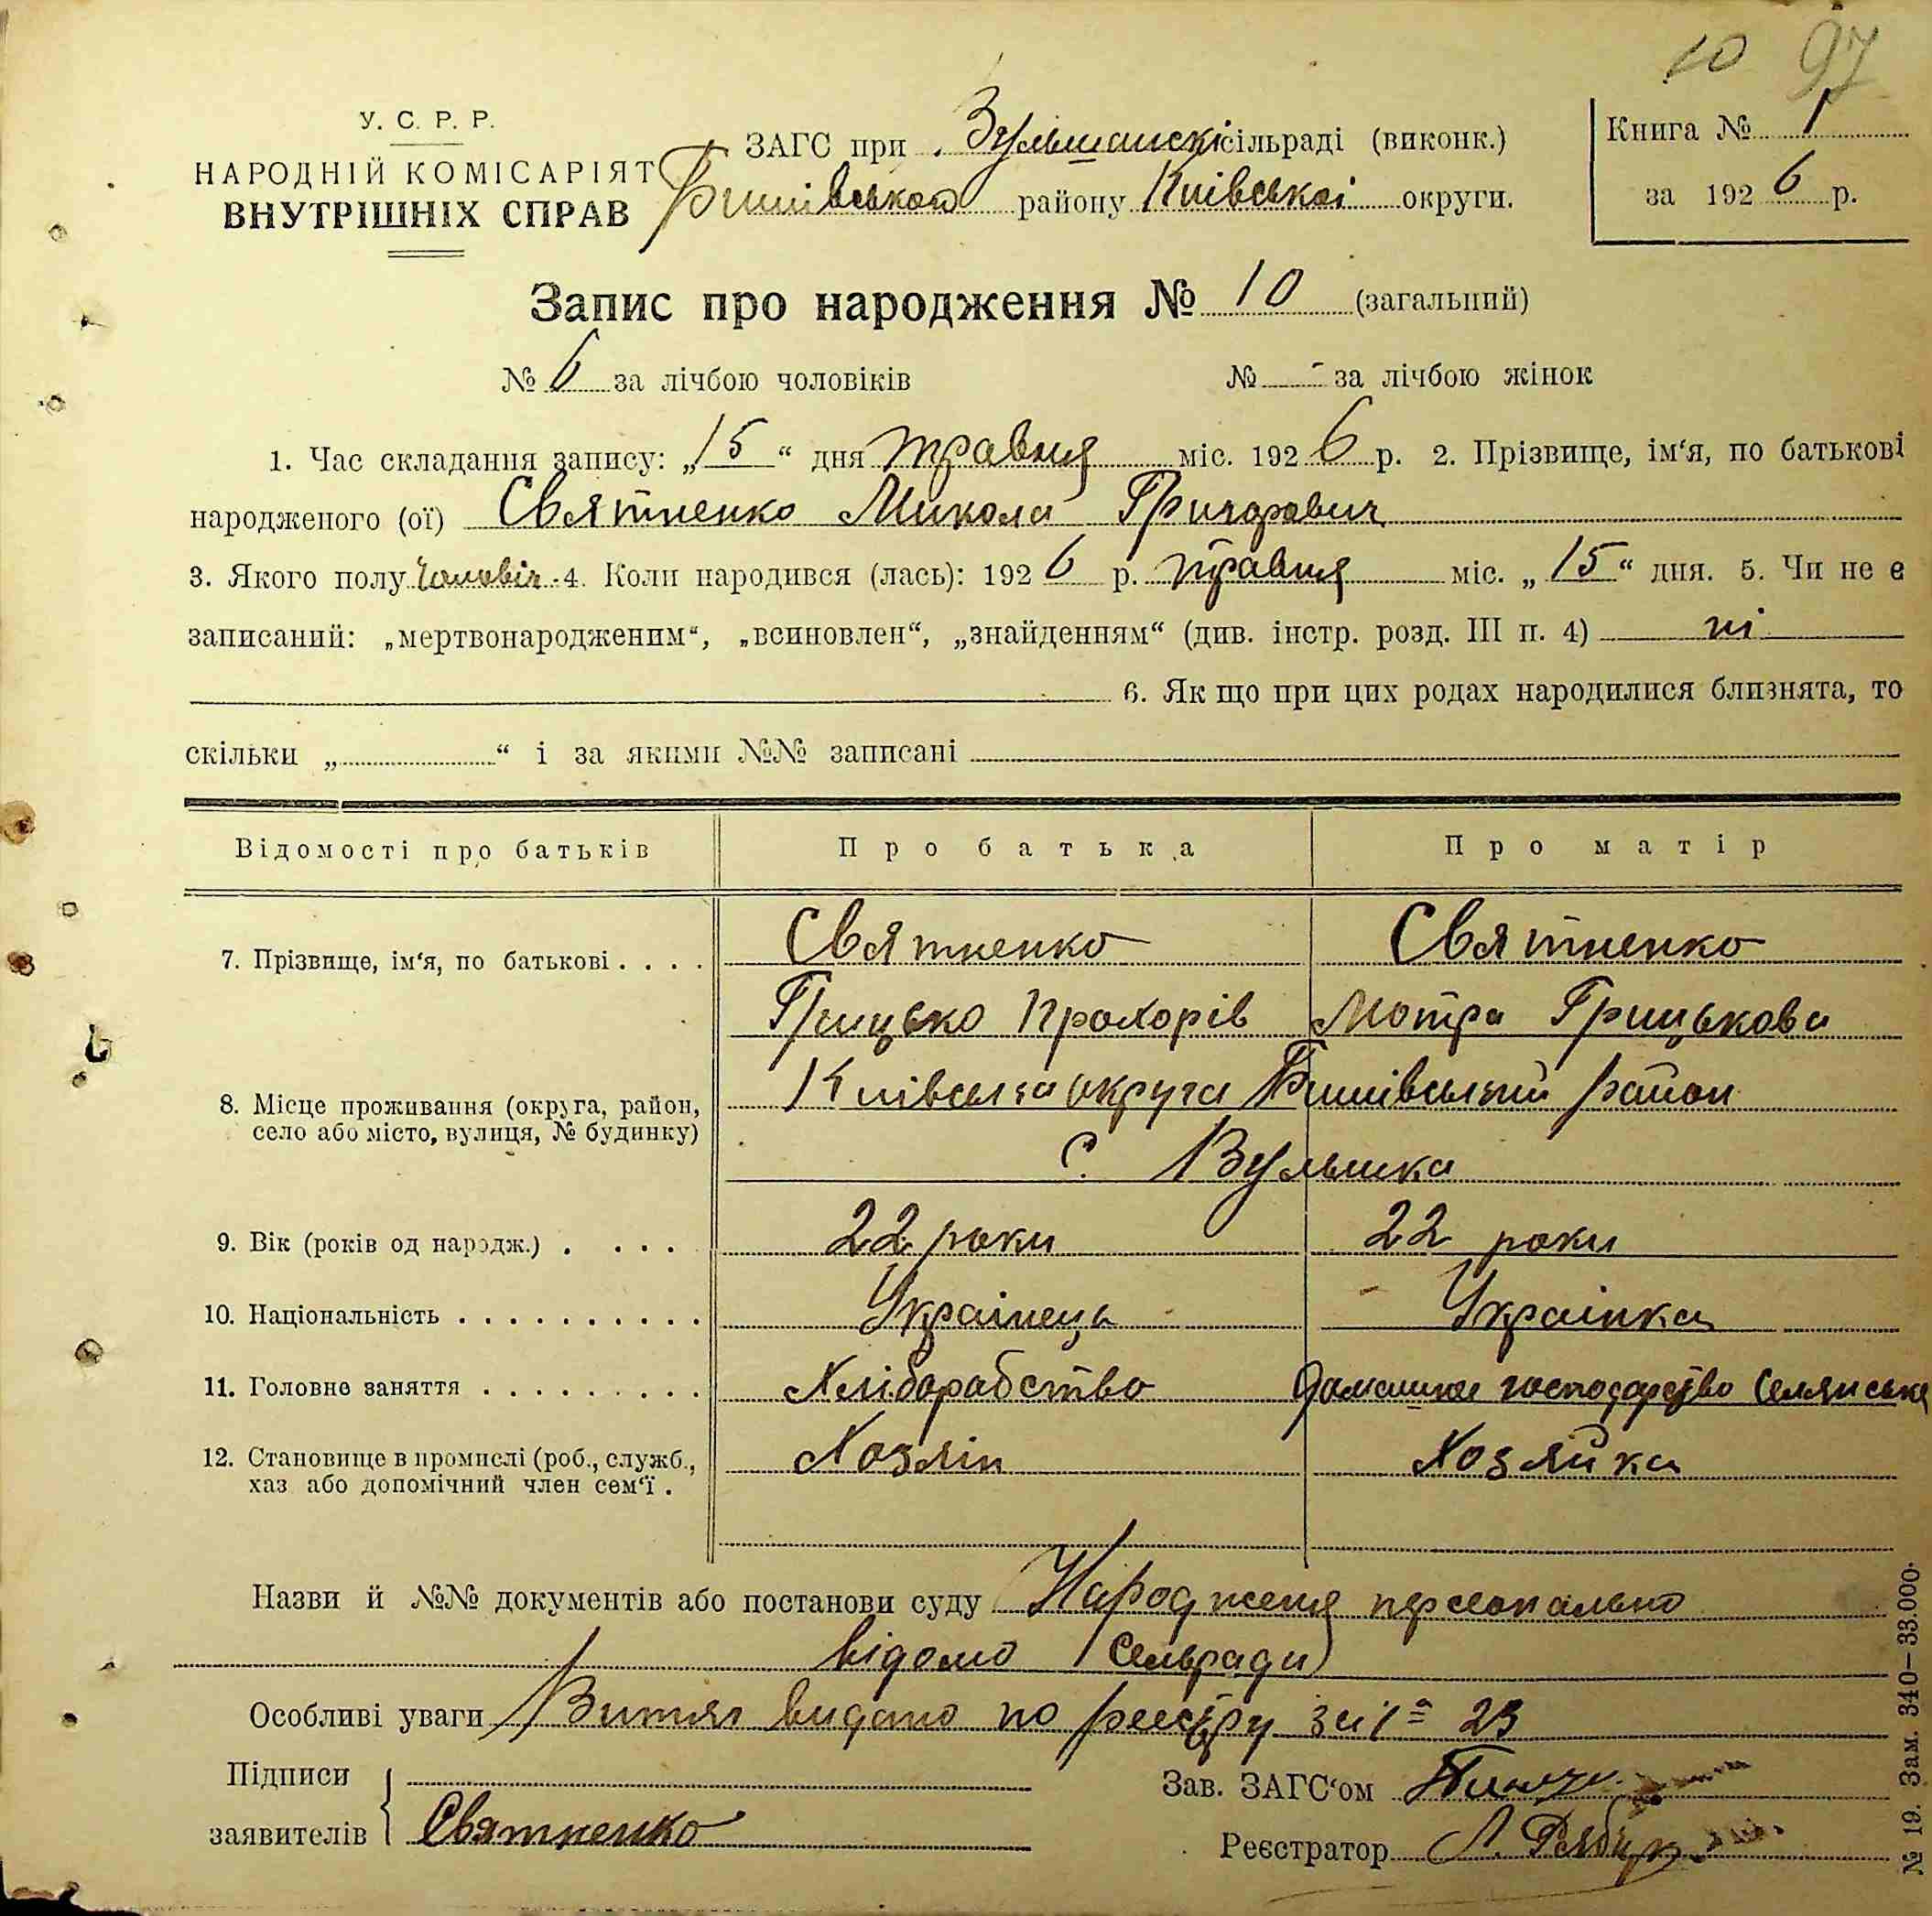 10 97
У. С. Р. Р.
НАРОДНІЙ КОМІСАРІЯТ
ВНУТРІШНІХ СПРАВ
ЗАГС при сільраді (виконк.)
району Київської округи.
Книга № 1
за 1926 р.
Запис про народження № 10 (загальний)
№ 6 за лічбою чоловіків № - за лічбою жінок
1. Час складання запису: „15“ дня травня міс. 1926 р. 2. Прізвище, ім‘я, по батькові
народженого (ої) Святненко Микола Григорович
3. Якого полу Чоловіч. 4. Коли народився (лась): 1926 р. травня міс. „15“ дня. 5. Чи не є
записаний: „мертвонародженим“, „всиновлен“, „знайденням“ (див. інстр. розд. III п. 4) ні
6. Як що при цих родах народилися близнята, то
скільки „ “ і за якими №№ записані
Відомості про батьків Про батька Про матір
7. Прізвище, ім‘я, по батькові . . . . Святненко Святненко
Грицько Прохорів Мотря Грицькова
8. Місце проживання (округа, район, Київська округа район
село або місто, вулиця, № будинку)
с. Вульшка
9. Вік (років од народж.) . . . . 22 роки 22 роки
10. Національність . . . . . . . . . . Українець Українка
11. Головне заняття . . . . . . . . . . Хліборобство Домашнє господарство Селянська
12. Становище в промислі (роб., служб., Хозяін Хозяйка
хаз або допомічний член сем‘ї .
Назви й №№ документів або постанови суду Народженя персонально
відомо Сельради
Особливі уваги Витяг видано по реєстру за № 23
Підписи
заявителів Святненко
Зав. ЗАГС‘ом
Реєстратор
№ 19. Зам. 340–33.000.